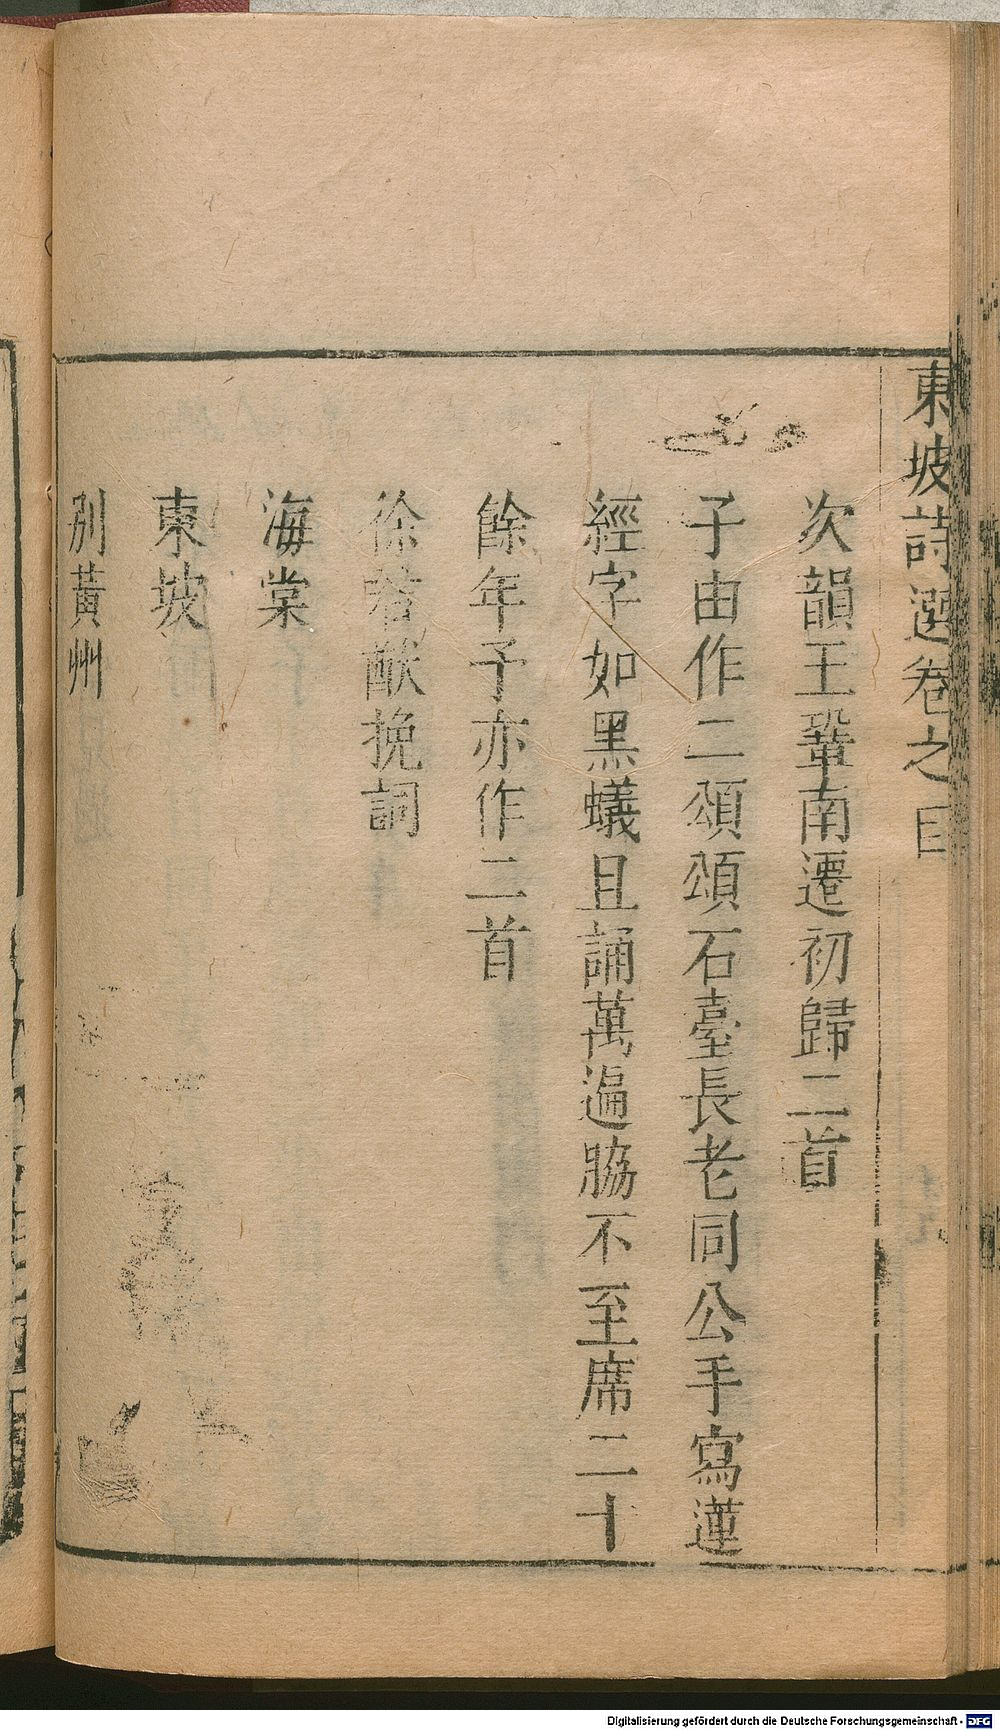 東坡詩選卷之目
次韻王鞏南遷初歸二首
子由作二頌頌石臺長老同公手寫蓮
經字如黑蟻且誦萬遍脇不至席二十
餘年予亦作二首
徐君猷挽詞
海棠
東坡
別黃州
Digitalisierung gefördert durch die Deutsche Forschungsgemeinschaft - DFG